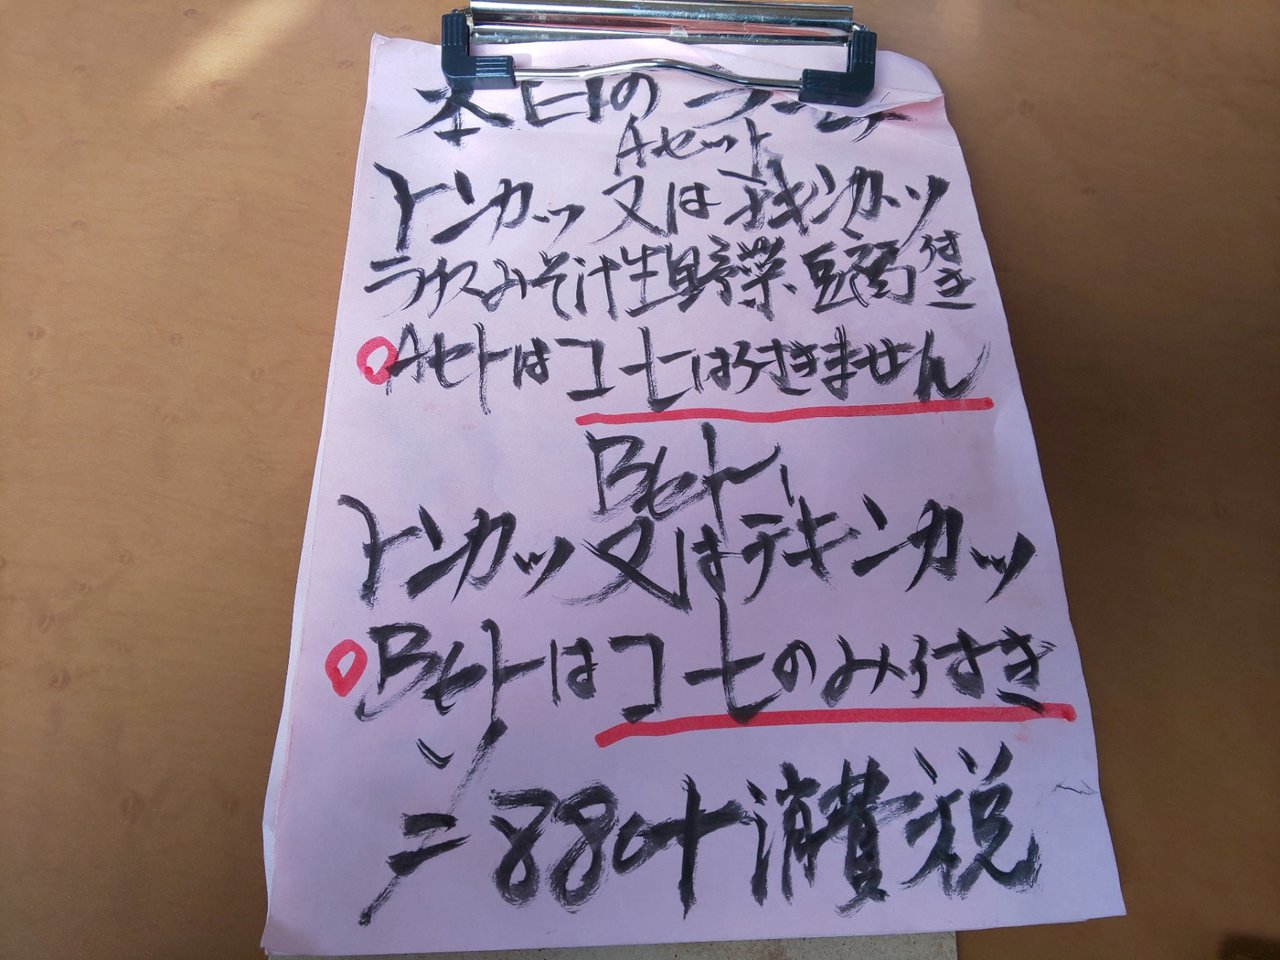 本日の
Aセット
トンカツ又はチキンカツ
ライスみそ汁生野菜、豆腐付き
Aセトはコーヒはつきません
Bセト
トンカツ又はチキンカツ
Bセトはコーヒのみつき
=880+消費税